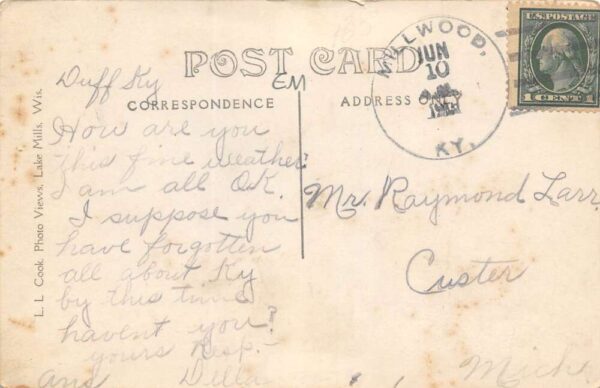 POST CARD
EM
CORRESPONDENCE
ADDRESS ONLY
MILLWOOD,
JUN
10
KY.
U.S. POSTAGE
1 CENT 1
L. L. Cook, Photo Views, Lake Mills, Wis.
Duff Ky
How are you
this fine weather
I am all O.K.
I suppose you
have forgotten
all about Ky
by this time
havent you?
yours Resp.-
ans Della
Mr. Raymond Larr
Custer
Mich